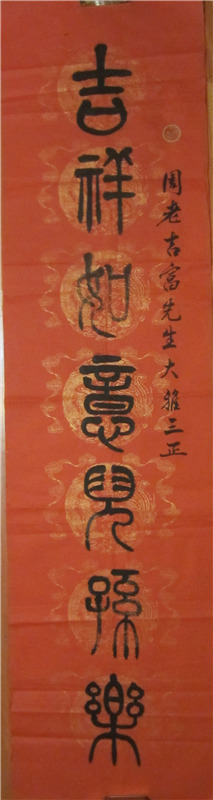 周老吉富先生大雅三正
吉祥如意兒孫樂